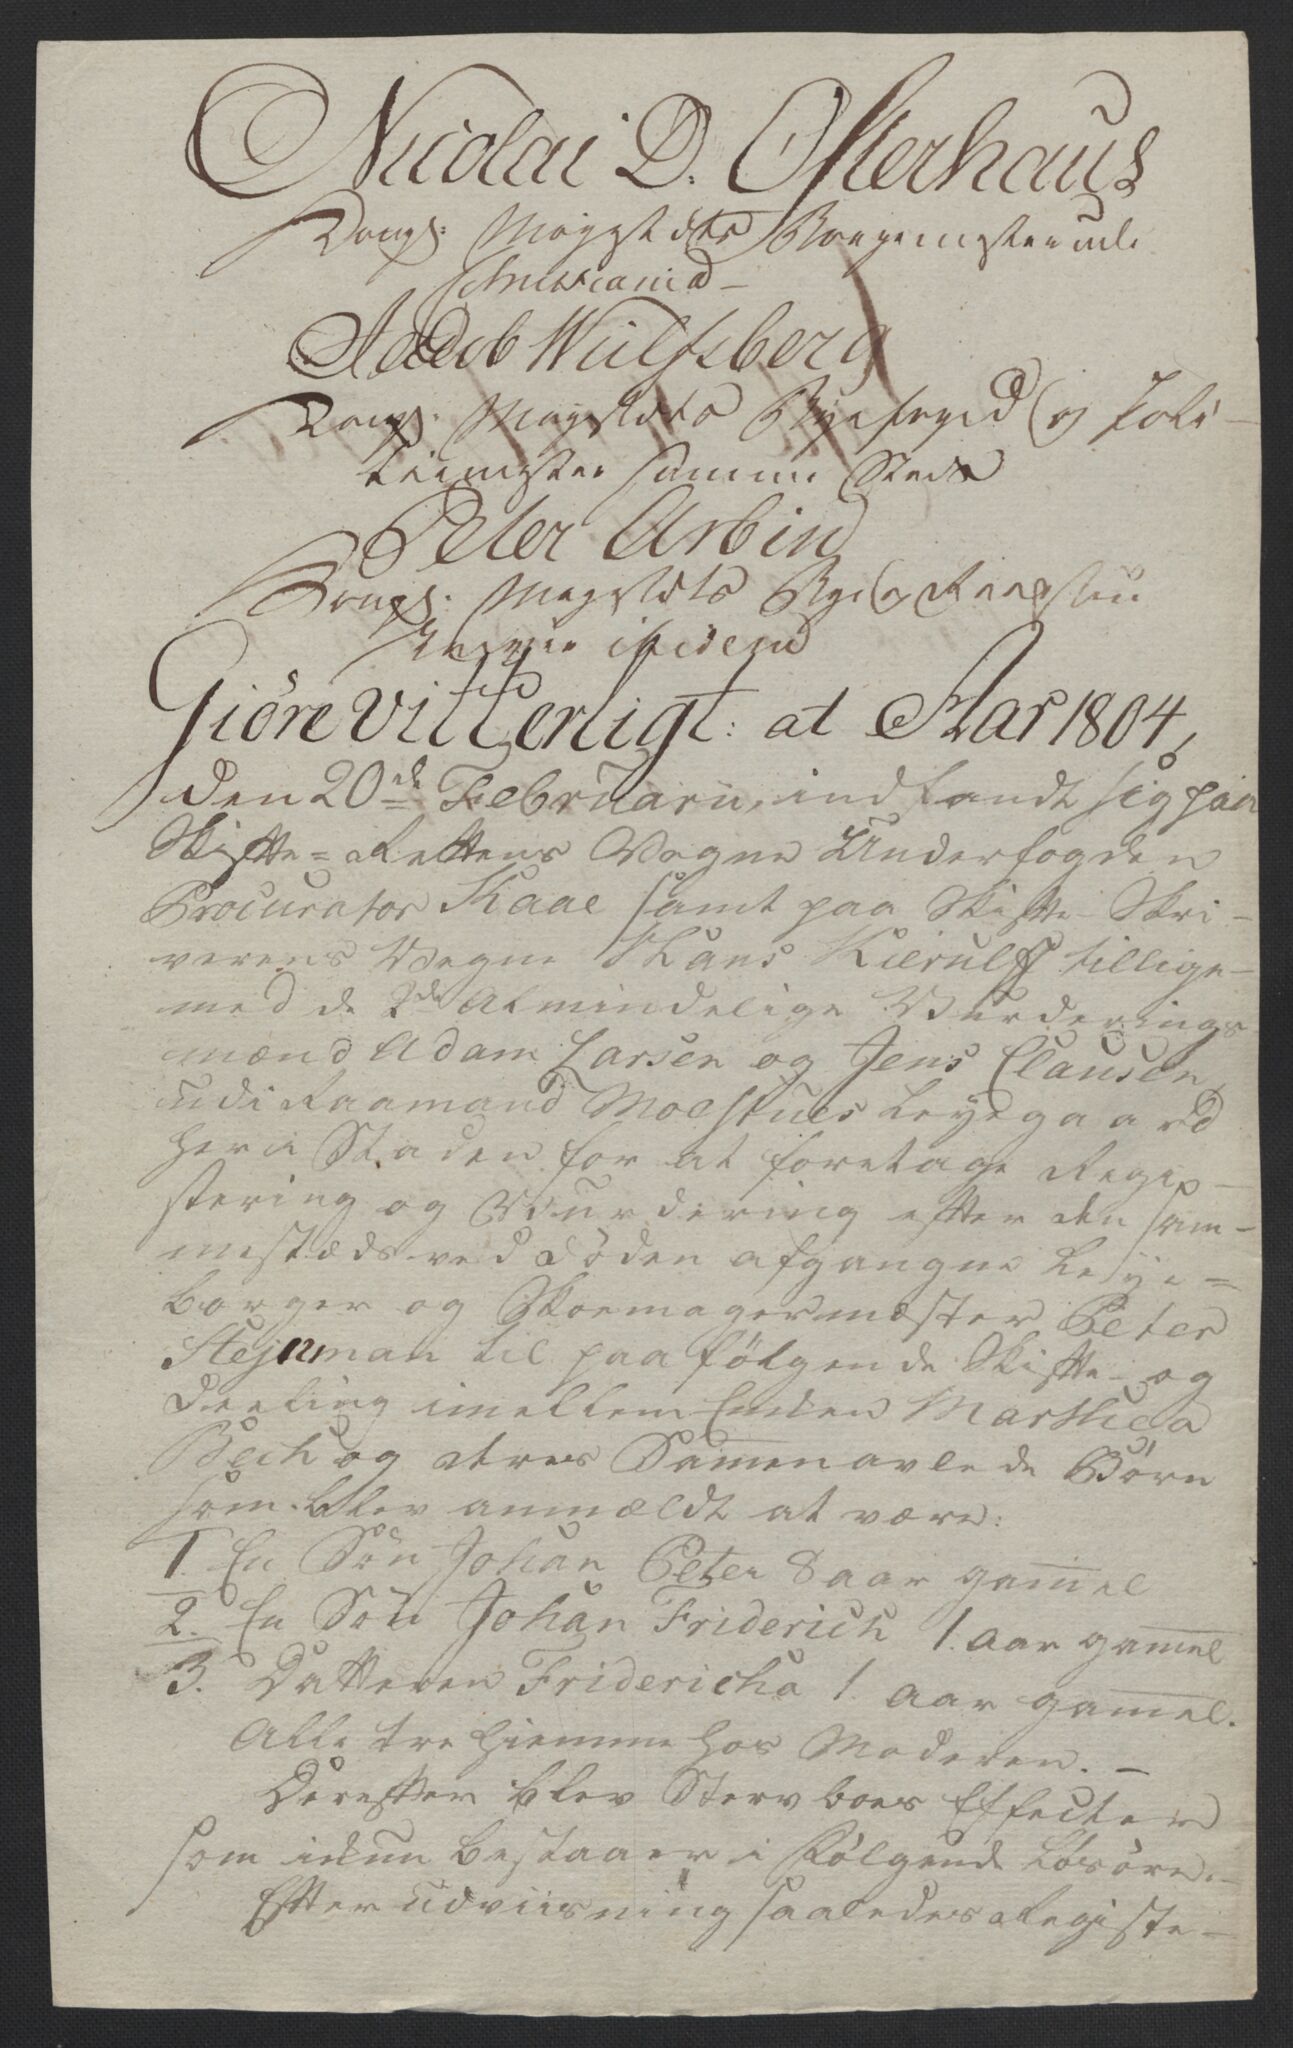 Nicolai D. Osterhaus
Kongl: Mayestæts Borgemester udi
Christiania –
Jacob Wulfsberg
Kongl: Mayestæts Byefoged og Poli-
tiemester samme Steds
Peter Arbin
Kongl: Mayestæts Bye og Raadstue
Skriver ibidem
Giöre Vitterligt: at Aar 1804,
den 20de Februarii, indfandt sig paa
Skifte-Rettens Vegne Underfogden
Procurator Kaae samt paa Skifte-Skri-
verens Vegne Hans Kierulff tillige-
med de 2de Almindelige Vurderings
mænd Adam Larsen og Jens Clausen,
udi Raamand Moestues Leyegaard
her i Staden for at foretage Regi-
stering og Vurdering efter den sam-
mestæds ved Döden afgangne Leye-
borger og Skoemagermester Peter
Stejnman til paafölgende Skifte- og
Deeling imellem Enken Marthea
Bech og deres Sammenavlede Börn
som blev anmældt at være:
1. En Sön Johan Peter 8 aar gammel
2. En Sön Johan Friderich 1. aar gammel
3. Datteren Fridericha 1. aar gammel.
Alle tre hiemme hos Moderen. –
Derefter blev Stervboes Effecter
som ikun bestaaer i Fölgende Lösöre. –
Efter udviisning saaledes Registe-